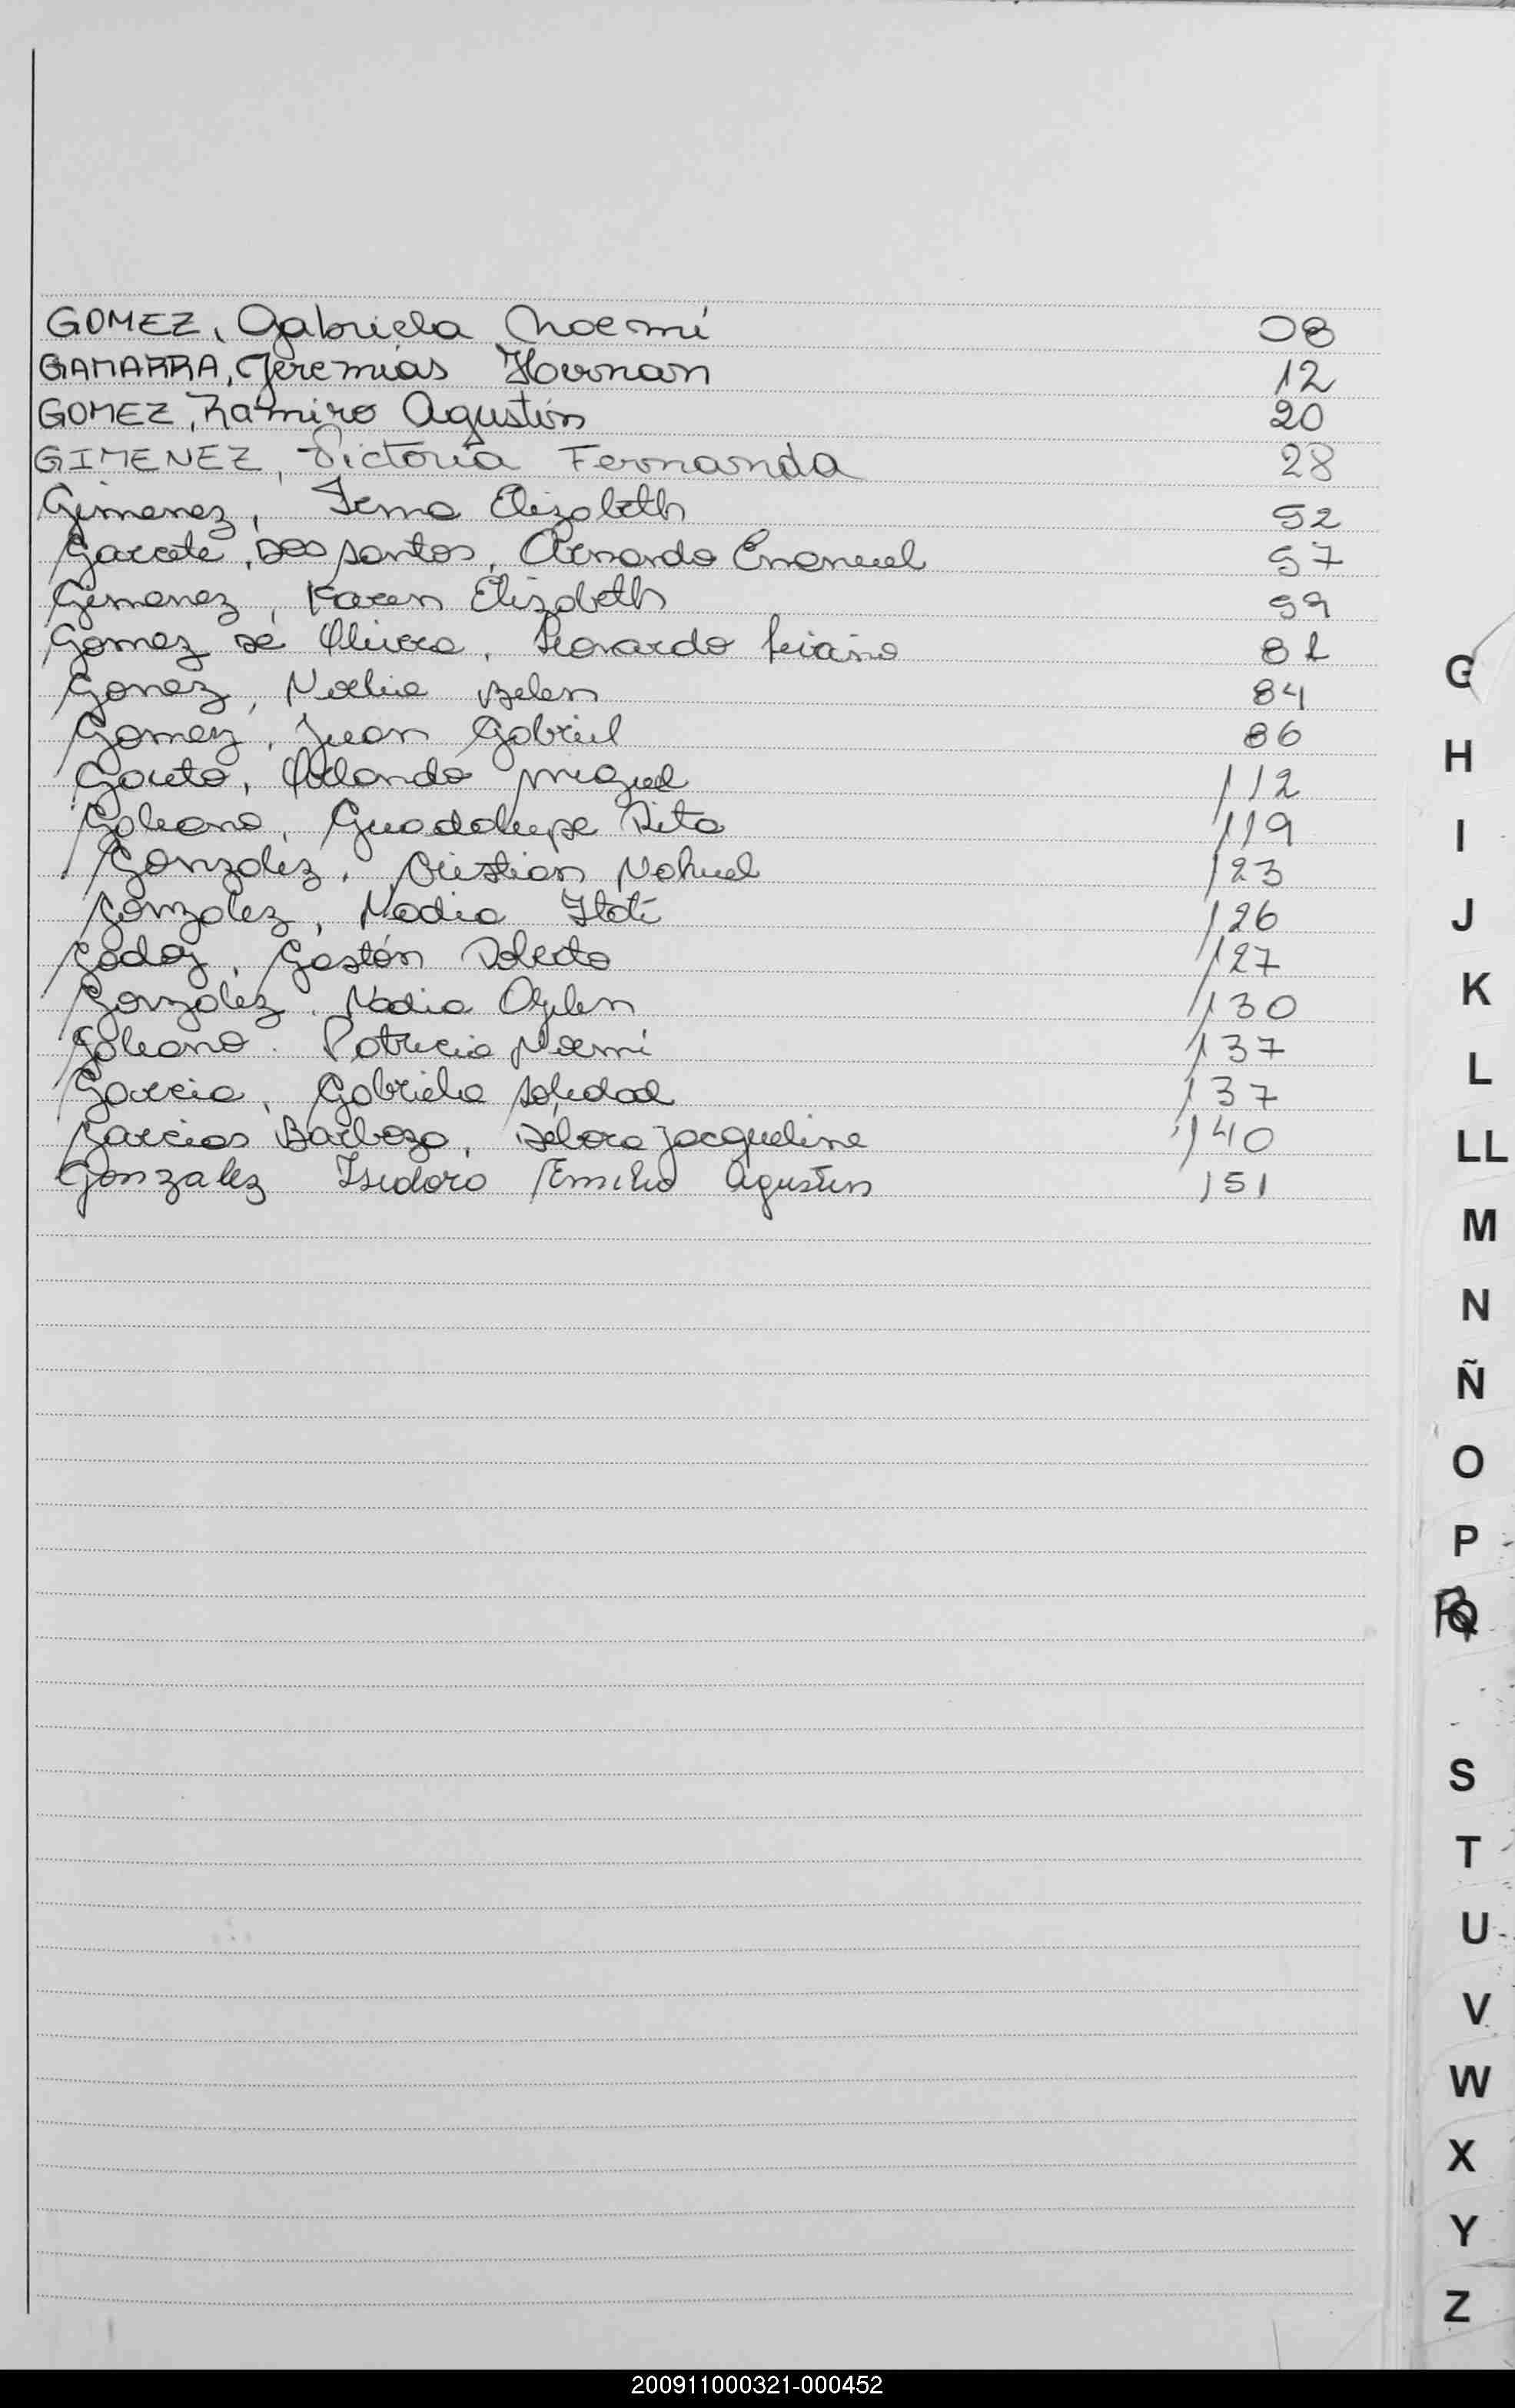 GOMEZ, Gabriela Noemí 08
GAMARRA, Jeremías Hernan 12
GOMEZ, Ramiro Agustín 20
GIMENEZ, Victoria Fernanda 28
Gimenez, Elizabeth 52
Garcete, Dos santos, Armando Emanuel 57
Gimenez, Karen Elizabeth 59
Gomez de Olivera, Leonardo 81
Gomez, Noelia Belen 84
Gomez, Juan Gabriel 86
Gauto, Orlando miguel 112
Galeano, Guadalupe Rita 119
González, Cristian Nahuel 123
Gonzalez, Nadia Itatí 126
Godoy, Gastón Roberto 127
Gonzalez, Nadia 130
Galeano. Patricia Noemi 137
Garcia, Gabriela Soledad 137
Garcias Barboza, Debora Jacqueline 140
Gonzalez Isidoro Emilio Agustin 151
G
H
I
J
K
L
LL
M
N
Ñ
O
P
Q
S
T
U
V
W
X
Y
Z
200911000321-000452